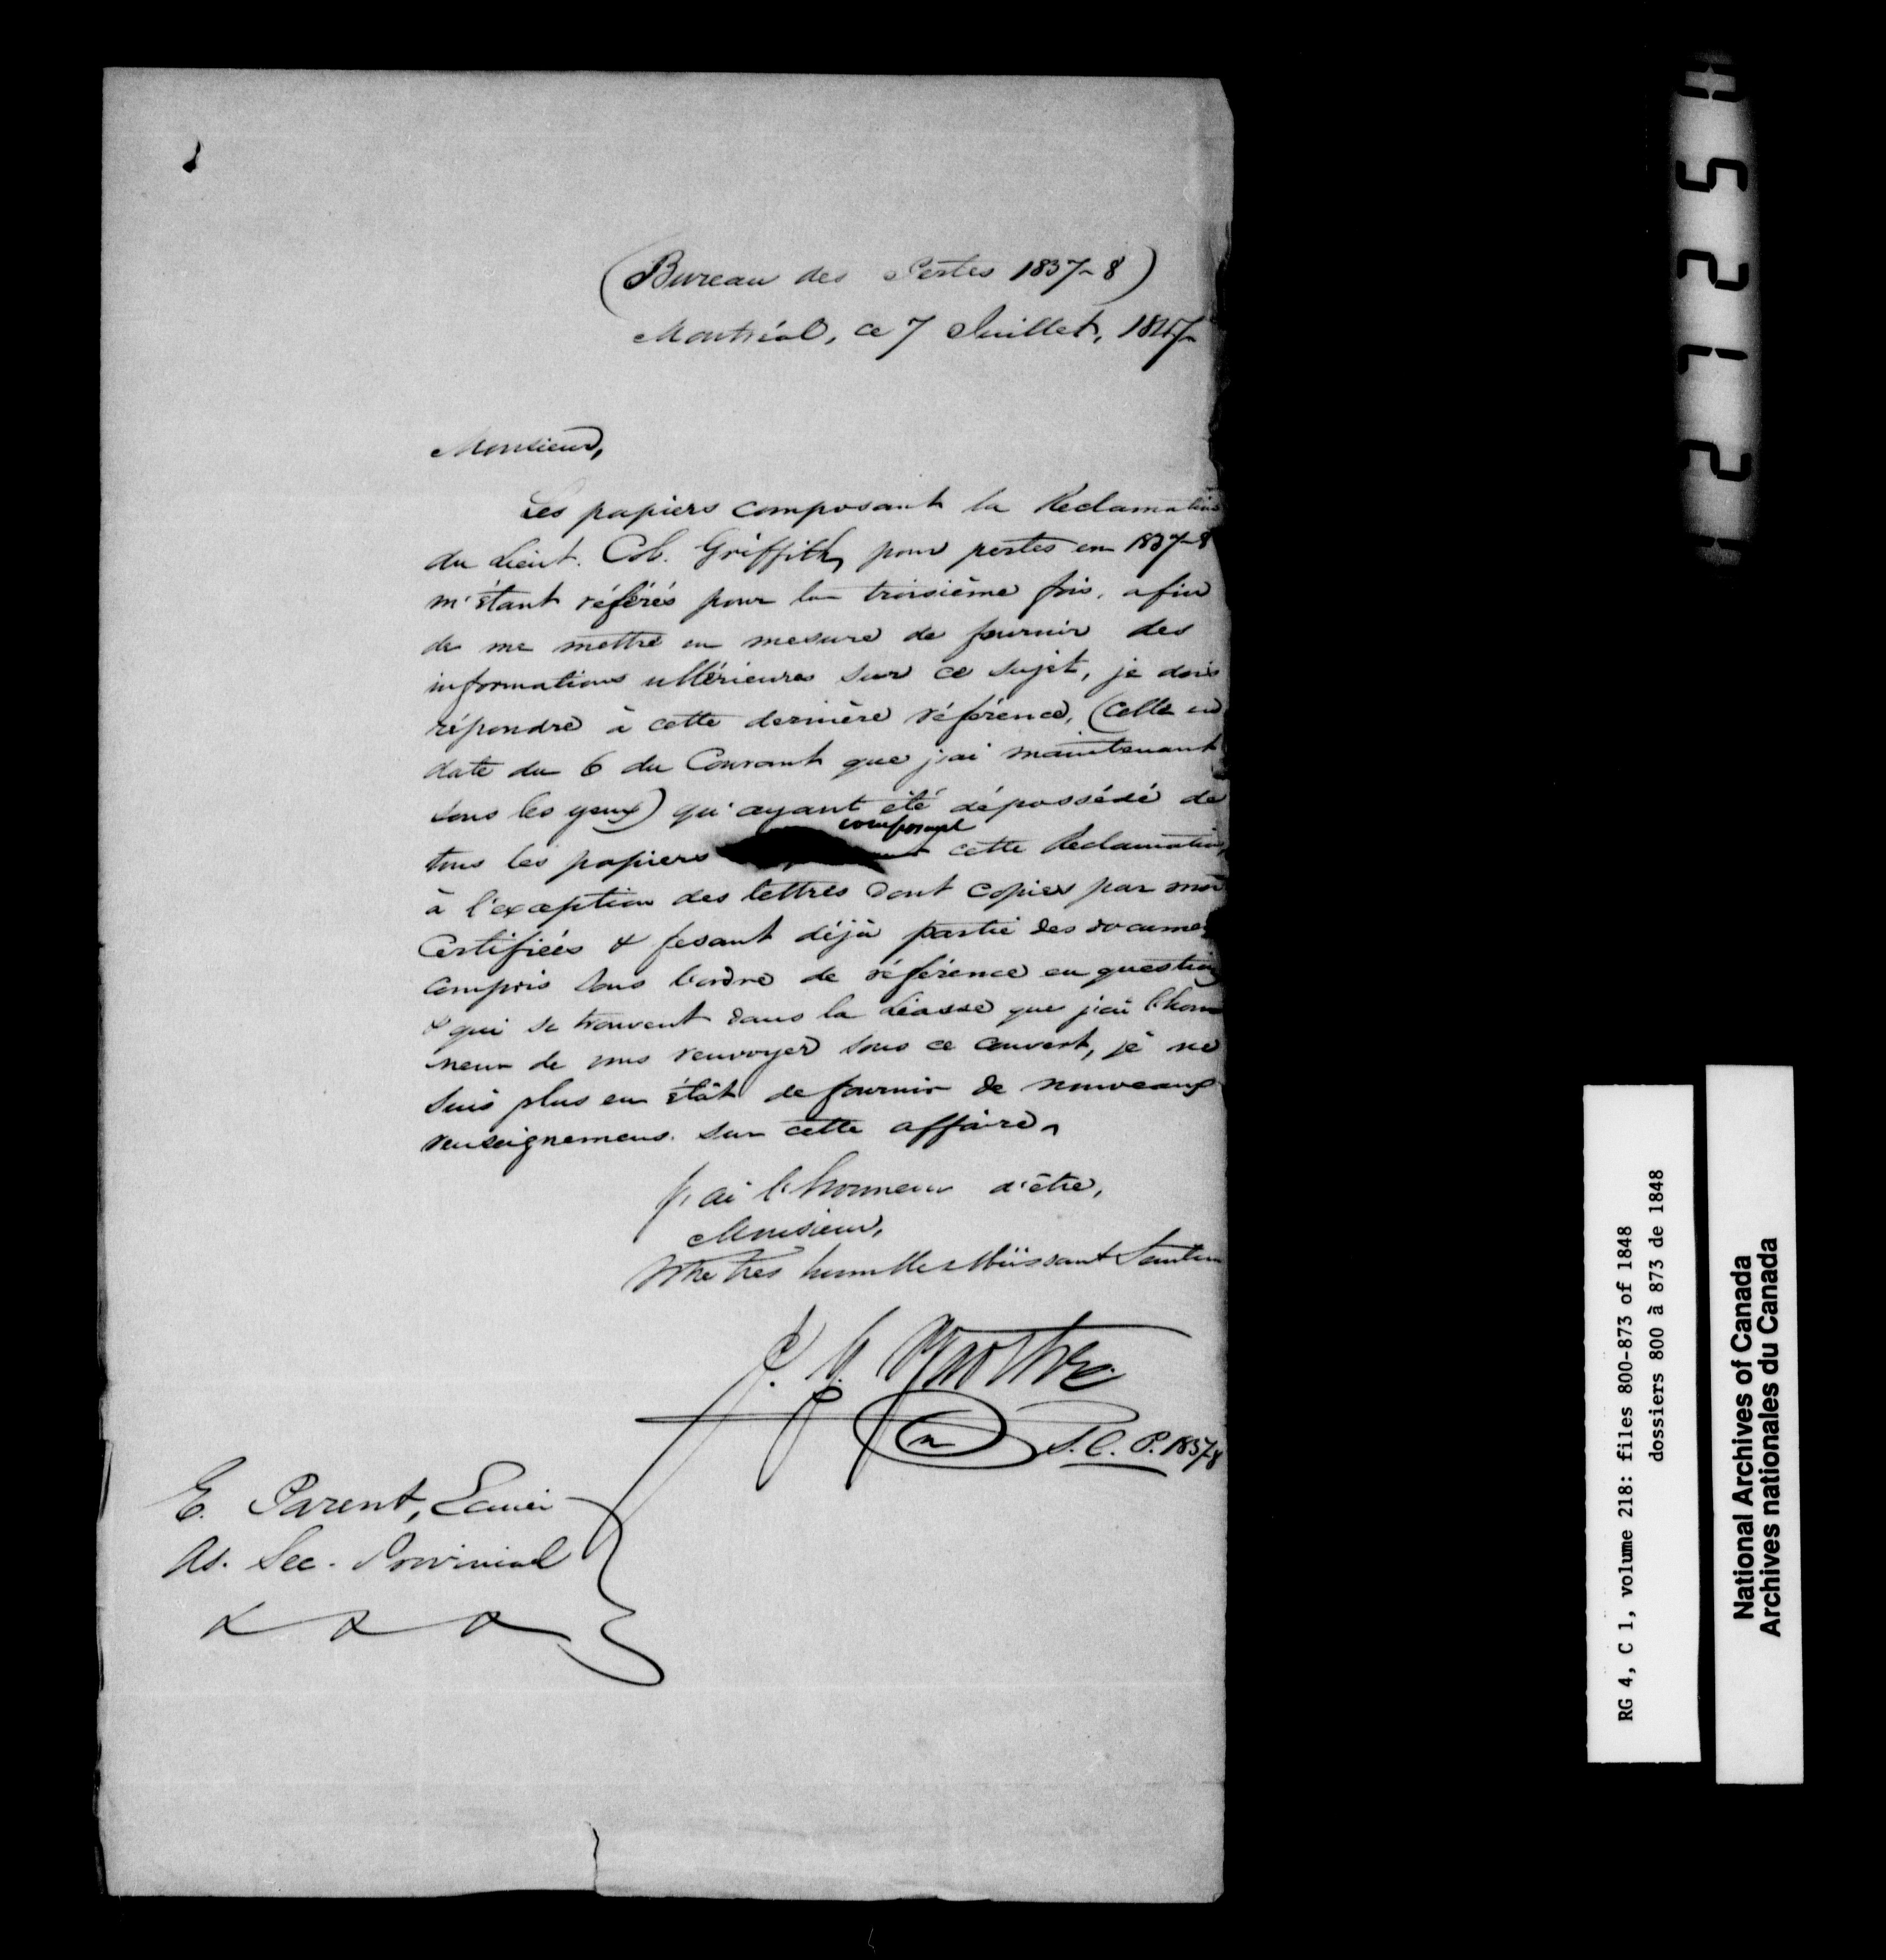 (Bureau des Pertes 1837-8)
Montréal, ce 7 Juillet, 1847-
Monsieur,
Les papiers composant la Reclamation
du Lieut. Col. Griffith, pour pertes en 1837-8
m'étant référés pour la troisième fois, afin
de me mettre en mesure de fournir des
informations ultérieures sur ce sujet, je dois
répondre à cette dernière référence, (celle en
date du 6 du Courant que j'ai maintenant
sous les yeux) qu'ayant été dépossédé de
composant
tous les papiers cette Reclamation,
à l'exception des lettres dont copies par moi
Certifiées & fesant déjà partie des documens
compris sous l'ordre de référence en question
& qui se trouvent dans la Liasse que j'ai l'hon-
neur de vous renvoyer sous ce couvert, je ne
suis plus en état de fournir de nouveaux
renseignemens sur cette affaire.
J'ai l'honneur d'être,
Monsieur,
Votre très humble & obéissant Serviteur
J. G.
S. C. P. 1837-8
E. Parent, Ecuier
As. Sec. Provincial
& & &
RG 4, C 1, volume 218: files 800-873 of 1848
dossiers 800 à 873 de 1848
National Archives of Canada
Archives nationales du Canada